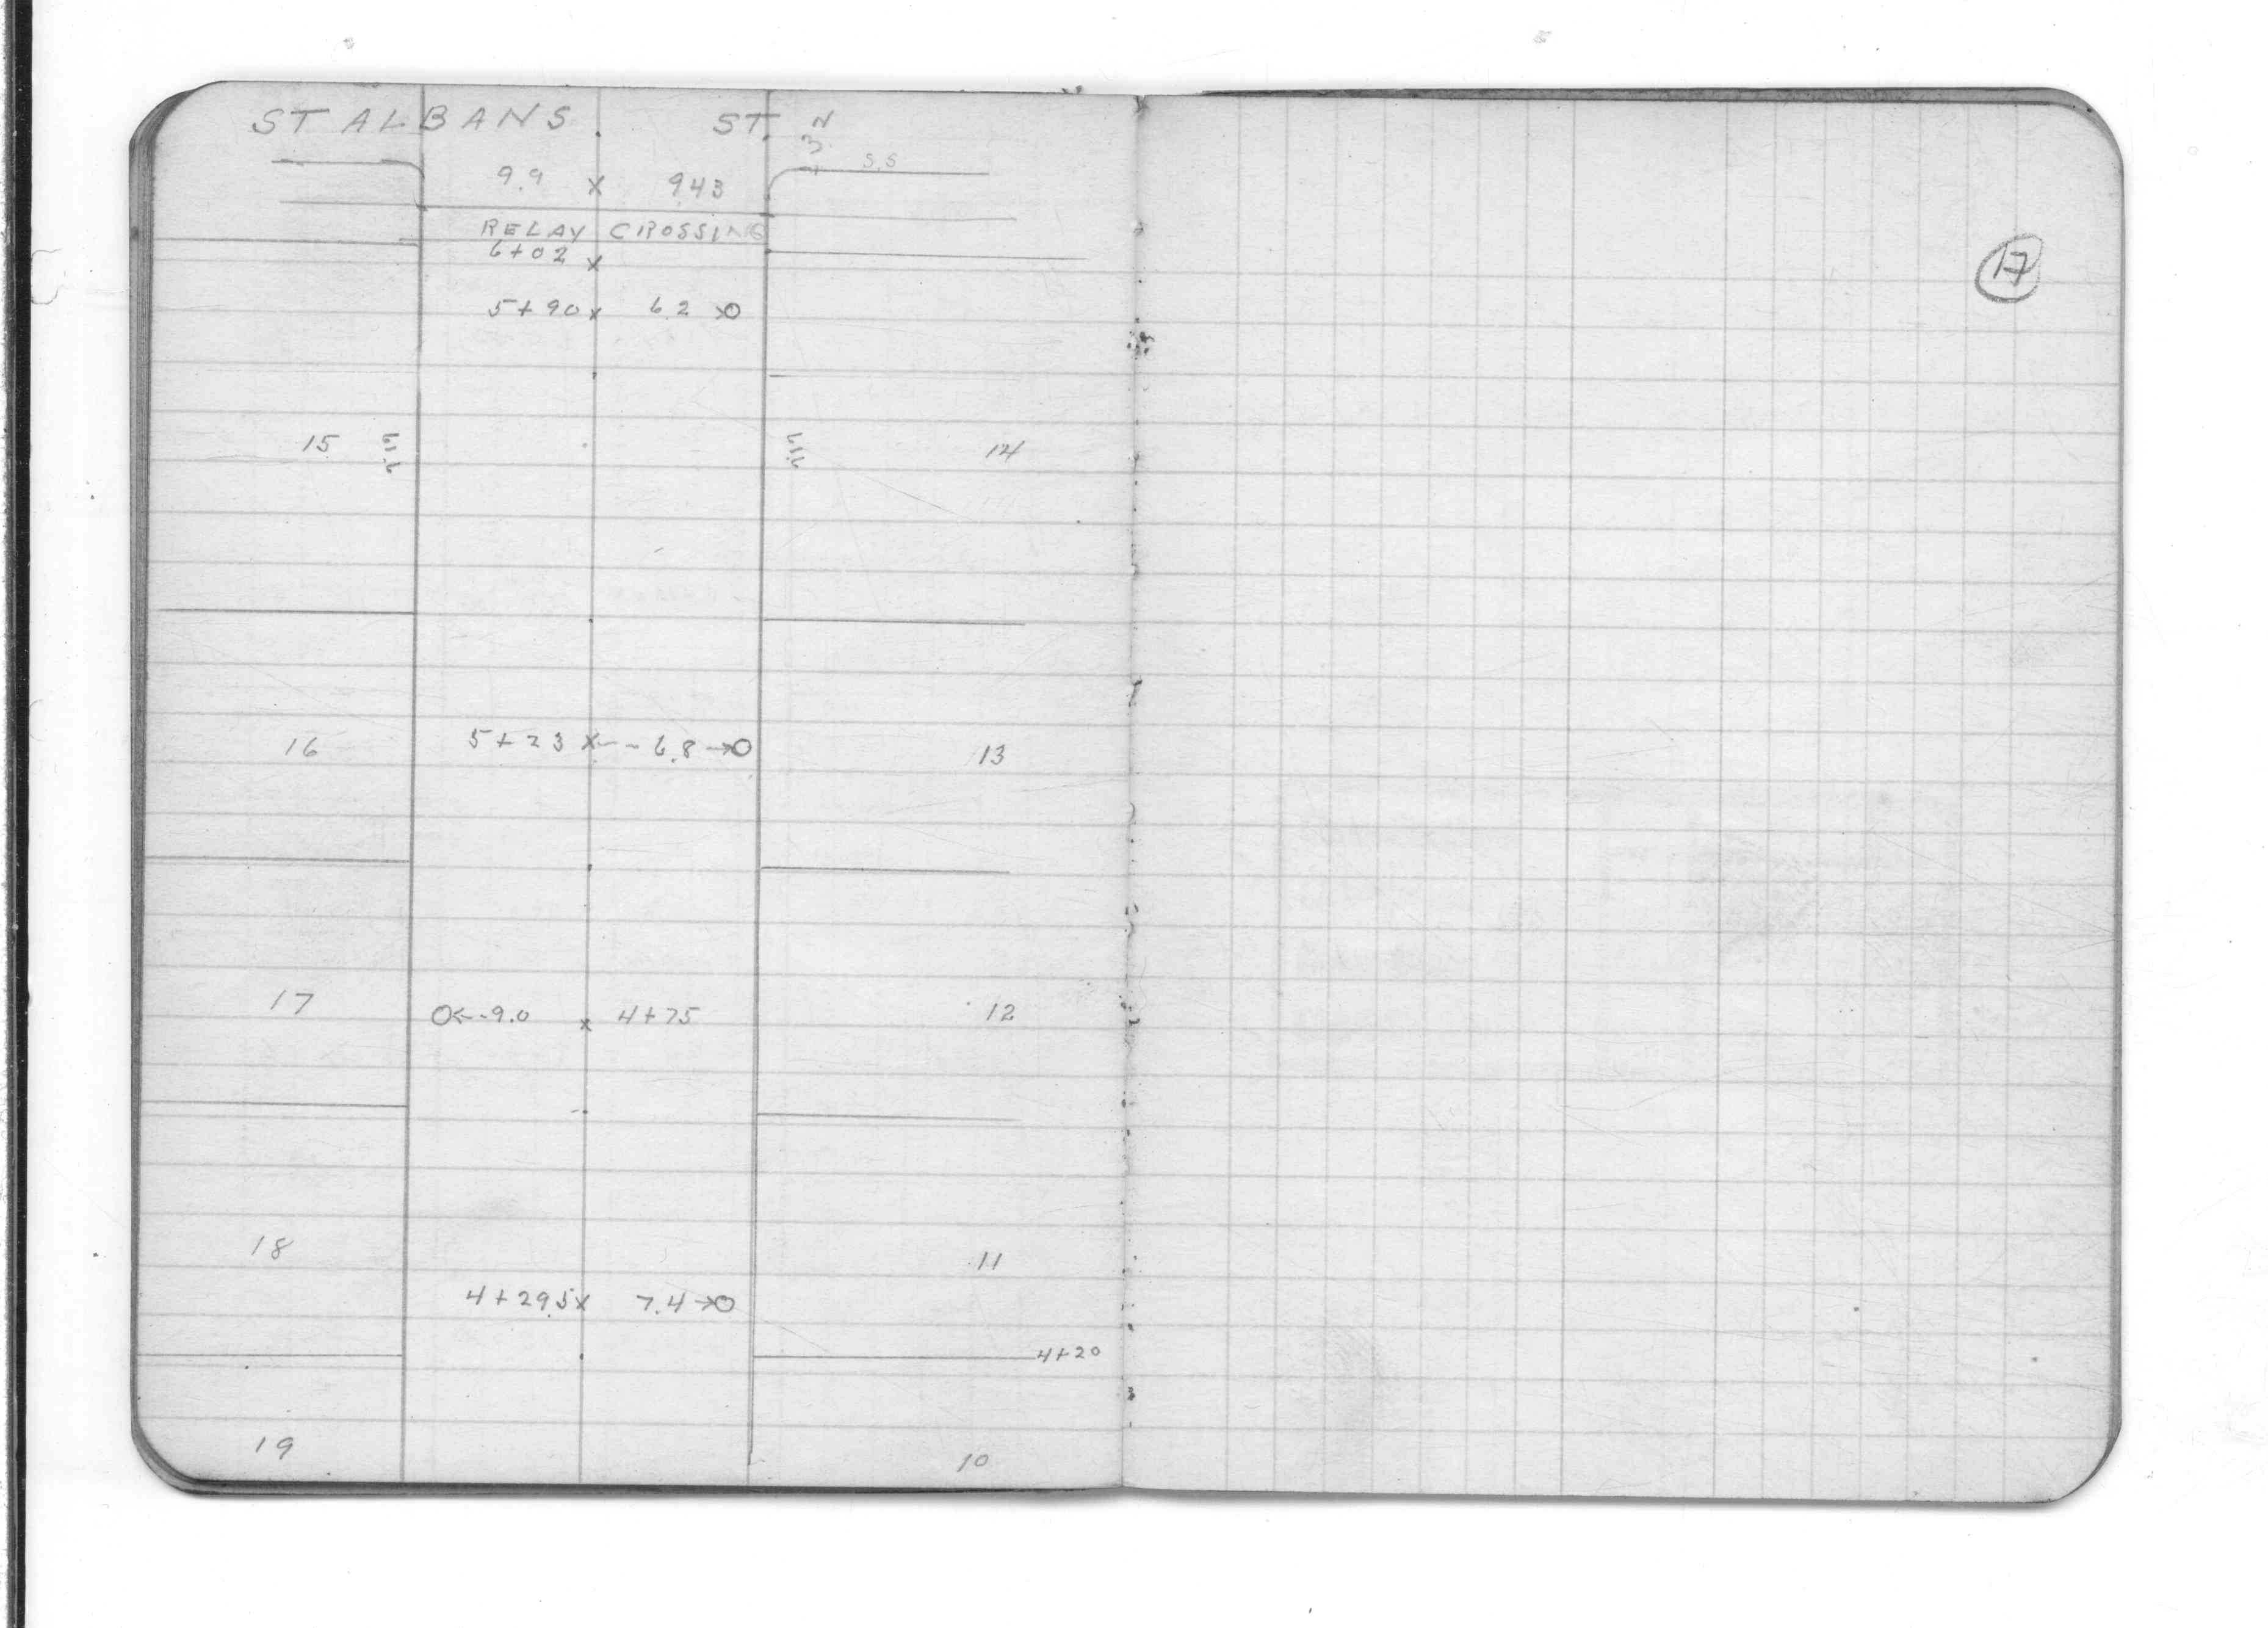 ST ALBANS. ST.
S.S
9.9 x 9.43
RELAY CROSSING
6+02 x
17
5+90 x 6.2 →O
15 14
16 5+23 x -- 6.8 →O 13
17 O<--9.0 x 4+75 12
18 11
4+29.5 x 7.4 →O
4+20
19 10